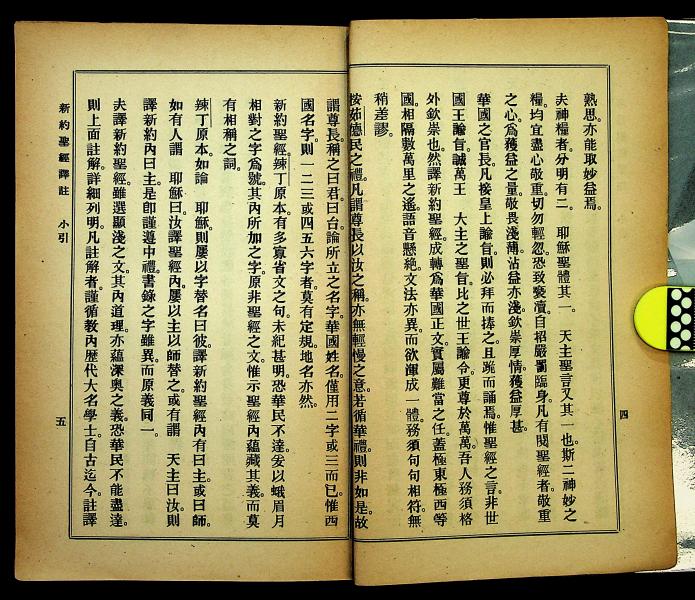 熟思。亦能取妙益焉。
夫神糧者。分明有二。　耶穌聖體其一。　天主聖言又其一也。斯二神妙之
糧。均宜盡心敬重。切勿輕忽。恐致褻瀆。自招嚴罰臨身。凡有閱聖經者。敬重
之心。爲獲益之量。敬畏淺薄。沾益亦淺。欽崇厚情。獲益厚甚。
華國之官長。凡接皇上諭旨。則必拜而捧之。且跪而誦焉。惟聖經之言。非世
國王諭旨。誠萬王　大主之聖旨。比之世王諭令。更尊於萬萬。吾人務須格
外欽崇也。然譯新約聖經。成轉爲華國正文。實屬難當之任。蓋極東極西等
國。相隔數萬里之遙。語音懸絶。文法亦異。而欲渾成一體。務須句句相符。無
稍差謬。
按茹德民之禮。凡謂尊長。以汝之稱。亦無輕慢之意。若循華禮。則非如是。故
謂尊長。稱之曰君。曰台。論所立之名字。華國姓名。僅用二字或三而已。惟西
國名字。則一二三或四五六字者。莫有定規。地名亦然。
新約聖經。辣丁原本。有多寡省文之句。未紀甚明。恐華民不達。爰以蛾眉月
相對之字爲號。其內所加之字。原非聖經之文。惟示聖經內蘊藏其義。而莫
有相稱之詞。
辣丁原本。如論　耶穌。則屢以字替名曰彼。譯新約聖經內。有曰主。或曰師。
如有人謂　耶穌曰汝。譯聖經內。屢以主以師替之。或有謂　天主曰汝。則
譯新約內曰主。是卽謹遵中禮。書錄之字雖異。而原義同一。
夫譯新約聖經。雖選顯淺之文。其內道理。亦蘊深奧之義。恐華民不能盡達。
則上面註解。詳細列明。凡註解者。謹循敎內歷代大名學士。自古迄今。註譯
新約聖經譯註　小引
四
五